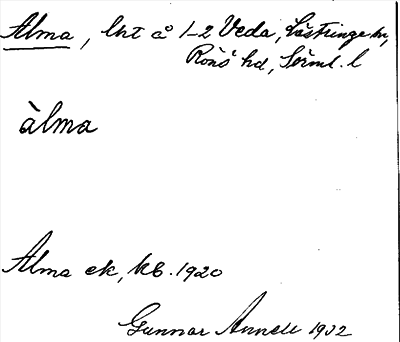 Alma, lht å 1-2 Veda, Lästringe sn,
Rönö hd, Sörml. l
àlma
Alma ek, kb. 1920
Gunnar Annell 1932